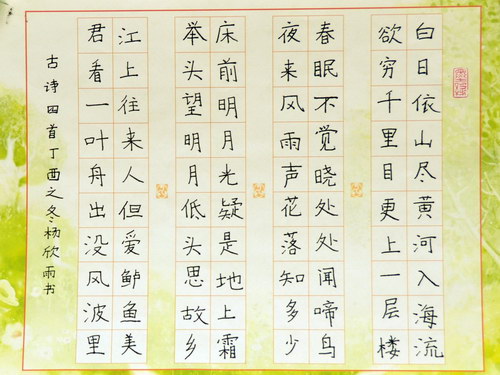 白日依山尽黄河入海流
欲穷千里目更上一层楼
春眠不觉晓处处闻啼鸟
夜来风雨声花落知多少
床前明月光疑是地上霜
举头望明月低头思故乡
江上往来人但爱鲈鱼美
君看一叶舟出没风波里
古诗四首丁酉之冬杨欣雨书